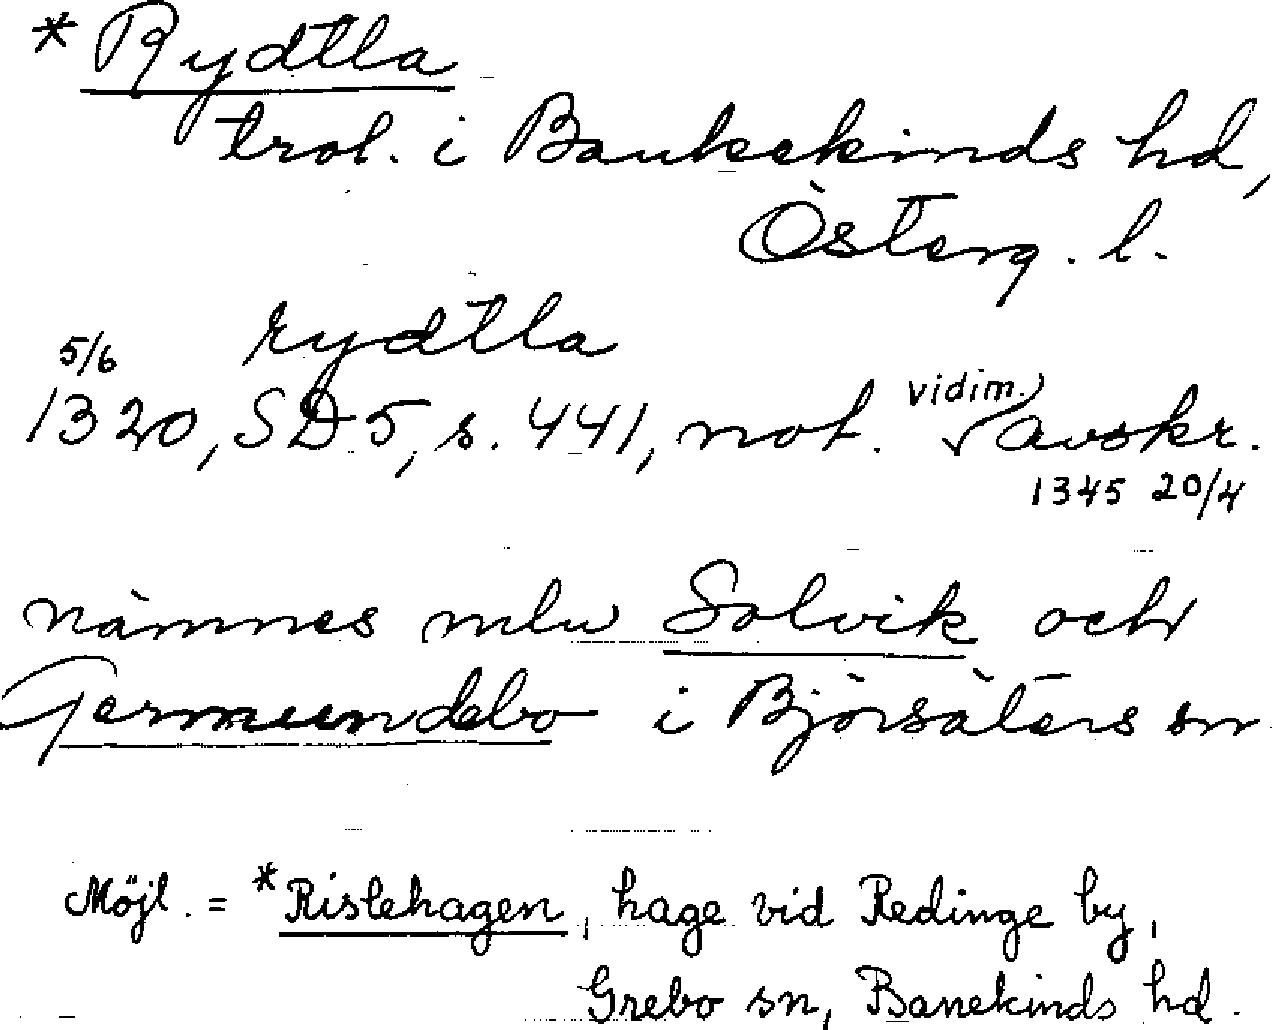 * Rydtla
trol. i Bankekinds hd,
Österg. l.
rydtla
5/6
1320, SD 5, s. 441, not. vidim. avskr.
1345 20/4
nämnes mlu Solvik och
Germundebo i Björsäters sn
Möjl. = *Ristehagen, hage vid Redinge by,
Grebo sn, Banekinds hd.